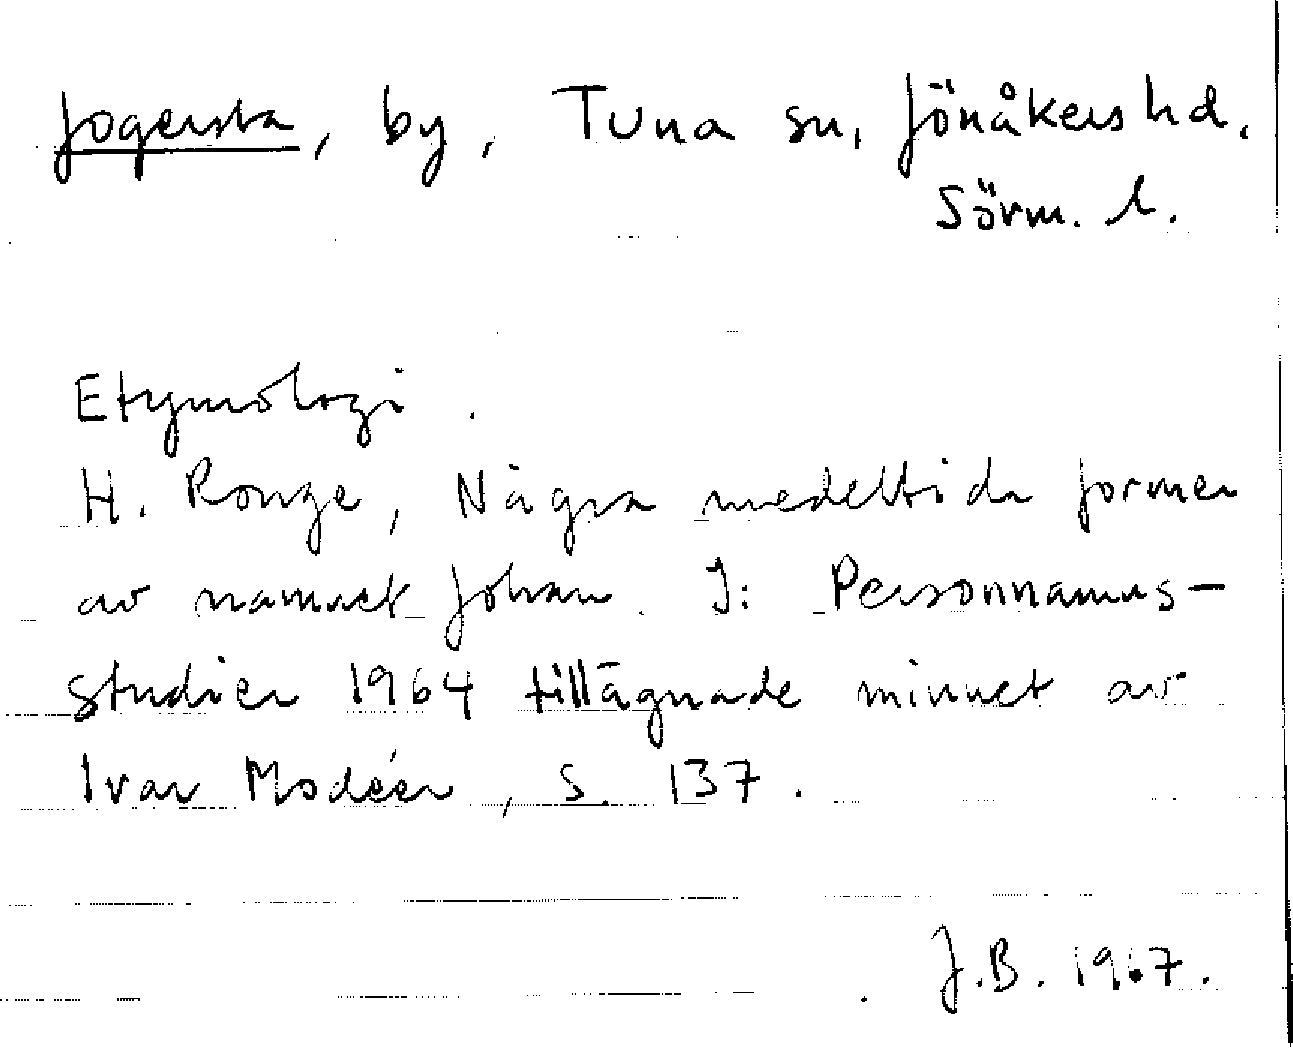 Jogersta, by, Tuna sn, Jönåkers hd,
Sörm. l.
Etymologi.
H. Ronge, Några medeltida former
av namnet Johan. I: Personnamns-
studier 1964 tillägnade minnet av
Ivar Modéer, S. 137.
J.B. 1967.